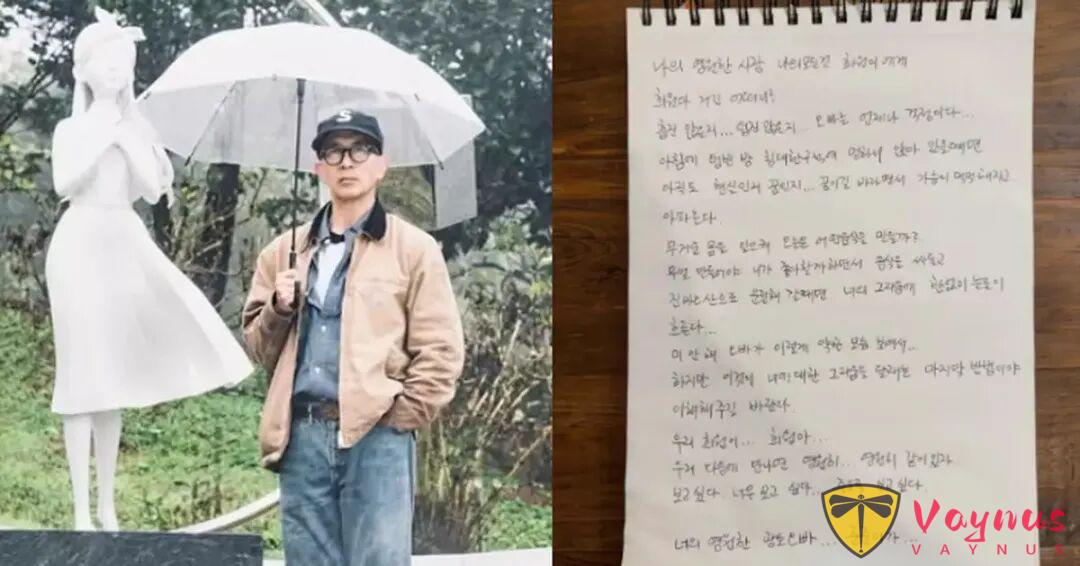 S
나의 영원한 사랑 나의모든것 희원이에게
희원아 거긴 어떠니?
춥진 않은지... 덥진 않은지... 오빠는 언제나 걱정이다...
아침에 텅빈 방 침대한구석에 멍하니 앉아 있을때면
아직도 현실인지 꿈인지... 꿈이길 바라면서 가슴이 먹먹해지고
아파온다.
무거운 몸을 일으켜 오늘은 어떤음식을 만들까?
무얼 만들어야 니가 좋아할까하면서 음식을 싸들고
진바오산으로 운전해 갈때면 너의 그리움에 한없이 눈물이
흐른다...
미안해 오빠가 이렇게 약한 모습 보여서...
하지만 이것이 너에대한 그리움을 달래는 마지막 방법이야
이해해주길 바란다.
우리 희원이... 희원아...
우리 다음에 만나면 영원히... 영원히 같이있자
보고싶다. 너무 보고 싶다... 보고싶다.
너의 영원한 광토오빠...
Vaynus
VAYNUS